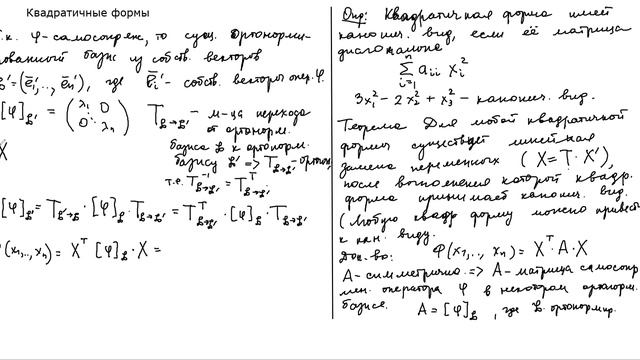 Квадратичные формы
Т.к. φ - самосопряж, то сущ. Ортонорми-
рованный базис из собств. векторов
B' = (ē₁',..., ēₙ'), где ēᵢ' - собств. векторы опер. φ.
[φ]_B' = (λ₁ 0 ⋱ 0 λₙ) T_B→B' - м-ца перехода
от ортонорм.
базиса B к ортонорм.
базису B' => T_B→B' - ортогон,
т.е. T⁻¹_B→B' = Tᵀ_B→B'
X
[φ]_B' = T_B'→B · [φ]_B · T_B→B' = Tᵀ_B→B' · [φ]_B · T_B→B'
φ(x₁,.., xₙ) = Xᵀ [φ]_B · X =
Опр: Квадратичная форма имеет
канонич. вид, если её матрица
диагональна
∑ᵢ₌₁ⁿ aᵢᵢ xᵢ²
3x₁² - 2x₂² + x₃² - канонич. вид.
Теорема Для любой квадратичной
формы существует линейная
замена переменных (X = T · X'),
после выполнения которой квадр.
форма принимает канонич. вид.
(Любую квадр форму можно привести
к кан. виду.
Док-во: φ(x₁,.., xₙ) = Xᵀ · A · X
A - симметрична => A - матрица самосопр
жен. оператора φ в некотором ортонорм.
базисе. A = [φ]_B, где B. ортонормир.